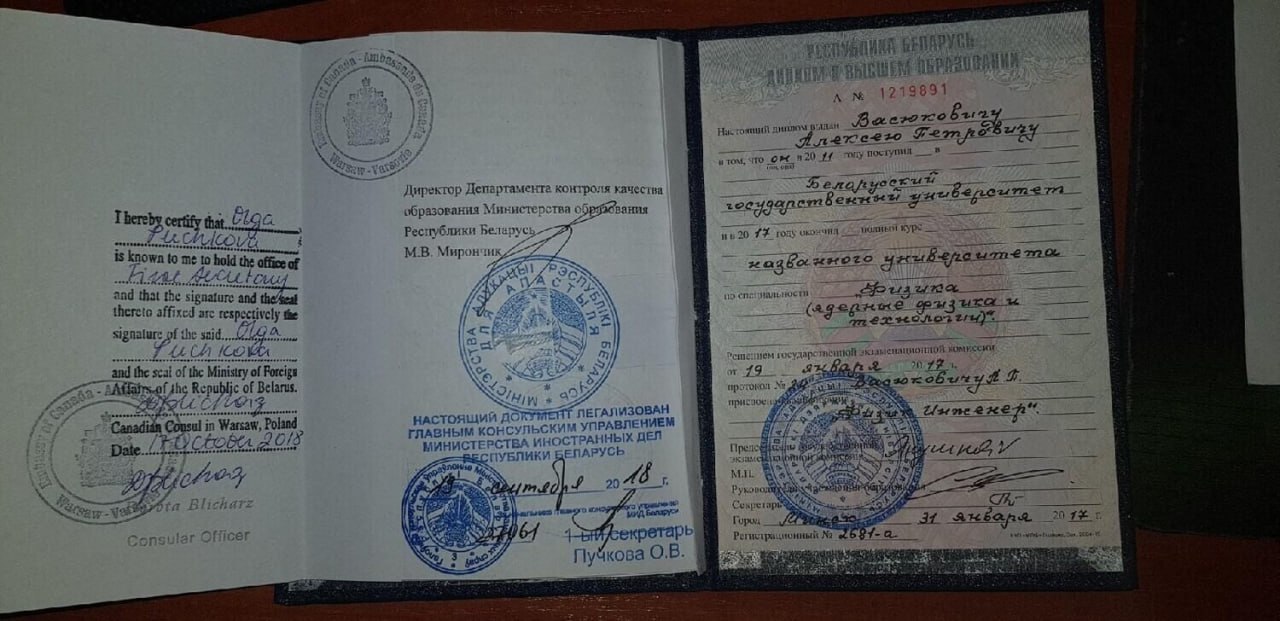 Embassy of Canada - Ambassade du Canada
Warsaw - Varsovie
I hereby certify that Olga
Puchkova
is known to me to hold the office of
First Secretary
and that the signature and the seal
thereto affixed are respectively the
signature of the said Olga
Puchkova
and the seal of the Ministry of Foreign
Affairs of the Republic of Belarus.
Canadian Consul in Warsaw, Poland
Date 17 October 2018
Blicharz
Consular Officer
Директор Департамента контроля качества
образования Министерства образования
Республики Беларусь
М.В. Мирончик
МІНІСТЭРСТВА АДУКАЦЫІ РЭСПУБЛІКІ БЕЛАРУСЬ
ДЛЯ АПАСТЫЛЯ
НАСТОЯЩИЙ ДОКУМЕНТ ЛЕГАЛИЗОВАН
ГЛАВНЫМ КОНСУЛЬСКИМ УПРАВЛЕНИЕМ
МИНИСТЕРСТВА ИНОСТРАННЫХ ДЕЛ
РЕСПУБЛИКИ БЕЛАРУСЬ
19 сентября 2018 г.
1-ый секретарь
Пучкова О.В.
РЕСПУБЛИКА БЕЛАРУСЬ
ДИПЛОМ О ВЫСШЕМ ОБРАЗОВАНИИ
А № 1219891
Настоящий диплом выдан Васюковичу
Алексею Петровичу
в том, что он в 2011 году поступил в
Белорусский
государственный университет
и в 2017 году окончил полный курс
названного университета
по специальности "Физика
(ядерные физика и
технологии)"
Решением государственной экзаменационной комиссии
от 19 января 2017 г.
протокол № Васюковичу А.П.
присвоена квалификация
"Физик. Инженер".
Председатель государственной
экзаменационной комиссии
М.П.
Руководитель учреждения образования
Секретарь
Город Минск 31 января 2017 г.
Регистрационный № 2681-а